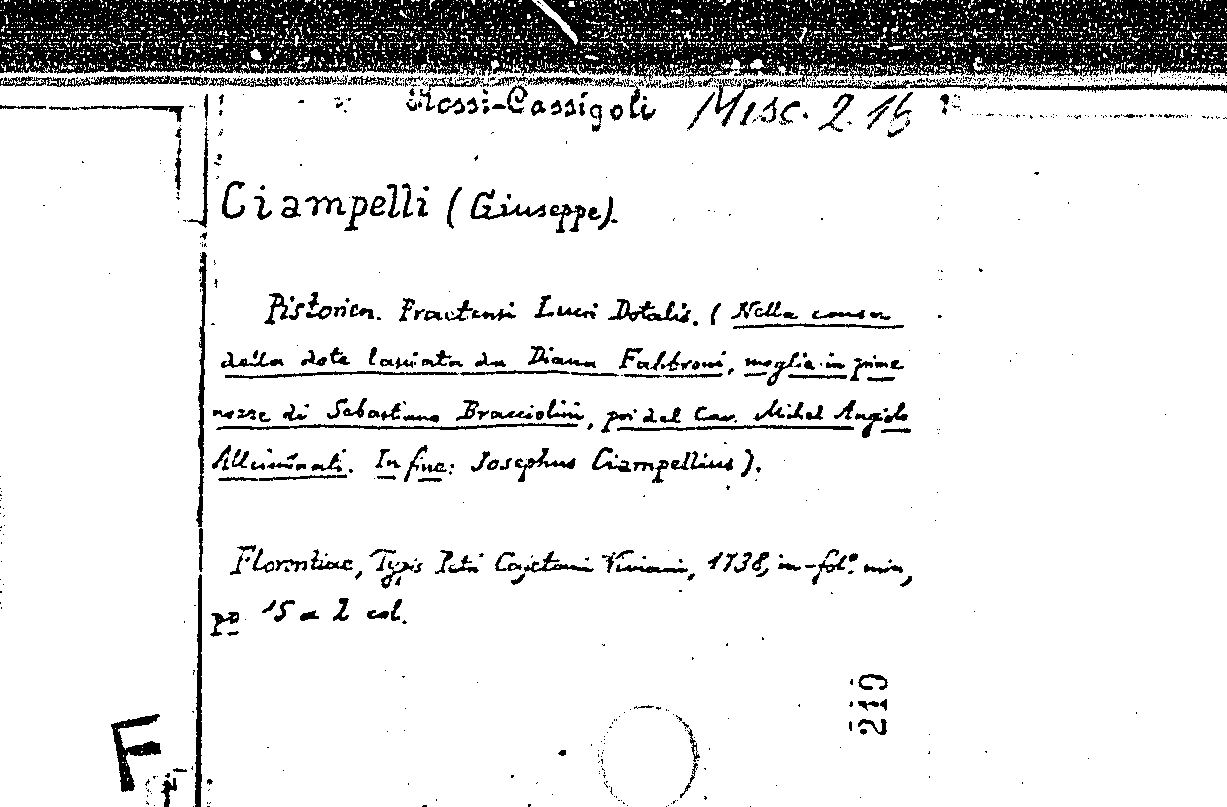 Rossi-Cassigoli Misc. 2.16
Ciampelli (Giuseppe).
Pistorien. Praetensi Lucri Dotalis. (Nella causa
della dote lasciata da Diana Fabbroni, moglie in prime
nozze di Sebastiano Bracciolini, poi del Cav. Michel Angiolo
In fine: Josephus Ciampellius).
Florentiae, Typis Petri Cajetani Viviani, 1738, in-fol.º min,
pp 15 a 2 col.
219
F